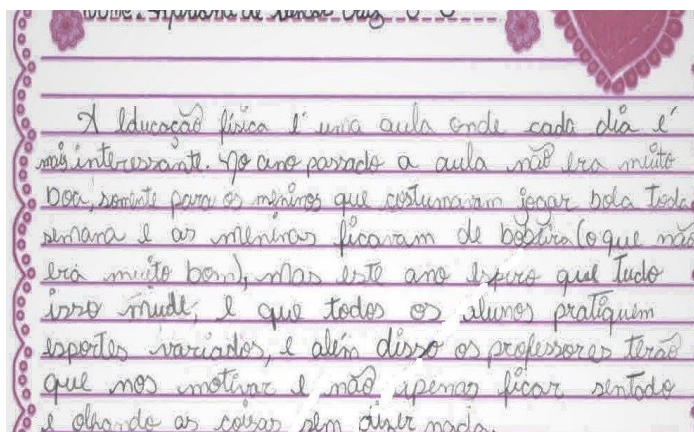 A Educação física é uma aula onde cada dia é
mais interessante. No ano passado a aula não era muito
boa, somente para os meninos que costumavam jogar bola toda
semana e as meninas ficavam de bobeira (o que não
era muito bom), mas este ano espero que tudo
isso mude, e que todos os alunos pratiquem
esportes variados, e além disso os professores terão
que nos motivar e não apenas ficar sentado
e olhando as coisas sem dizer nada.